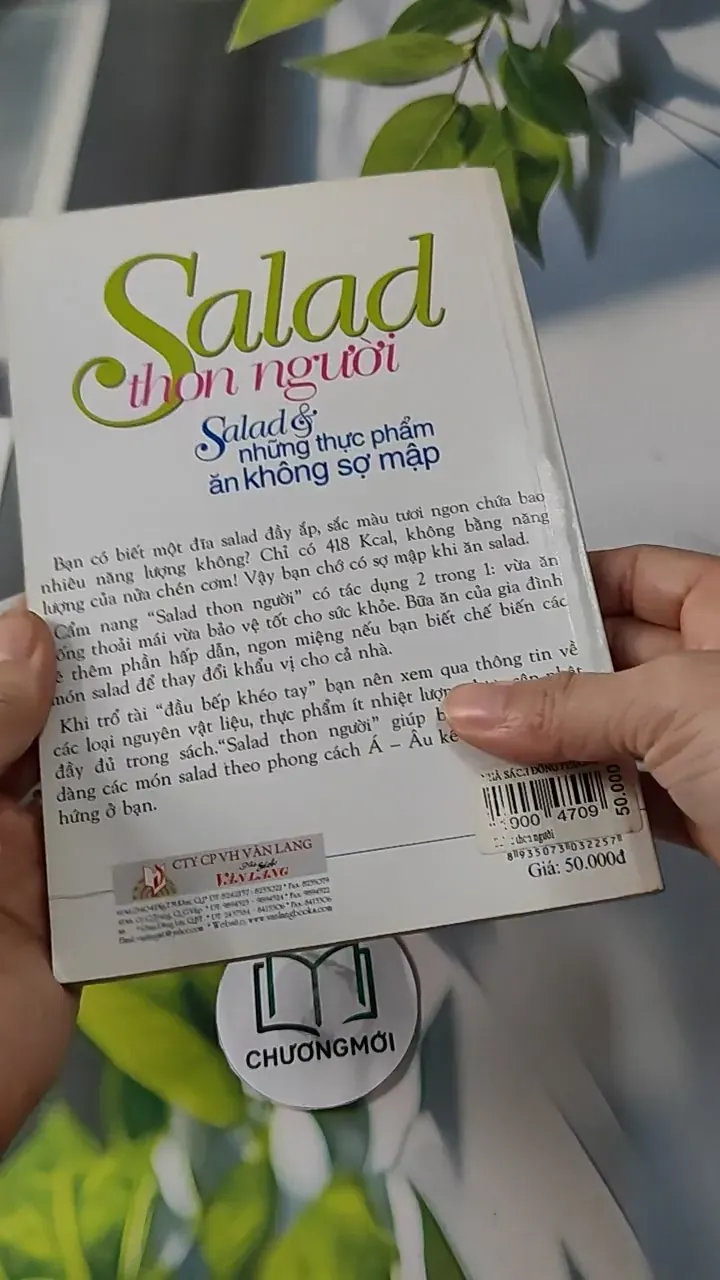 Salad
thon người
Salad &
những thực phẩm
ăn không sợ mập
Bạn có biết một đĩa salad đầy ắp, sắc màu tươi ngon chứa bao
nhiêu năng lượng không? Chỉ có 418 Kcal, không bằng năng
lượng của nửa chén cơm! Vậy bạn chớ có sợ mập khi ăn salad.
Cẩm nang "Salad thon người" có tác dụng 2 trong 1: vừa ăn
thoải mái vừa bảo vệ tốt cho sức khỏe. Bữa ăn của gia đình
thêm phần hấp dẫn, ngon miệng nếu bạn biết chế biến các
món salad để thay đổi khẩu vị cho cả nhà.
Khi trổ tài "đầu bếp khéo tay" bạn nên xem qua thông tin về
các loại nguyên vật liệu, thực phẩm ít nhiệt
đầy đủ trong sách. "Salad thon người" giúp
dàng các món salad theo phong cách Á – Âu
hứng ở bạn.
900 4709
50.000
người
8 935073 032257
Giá: 50.000đ
CTY CP VH VĂN LANG
VĂN LANG
Website: www.vanlangbooks.com
CHƯƠNGMỚI